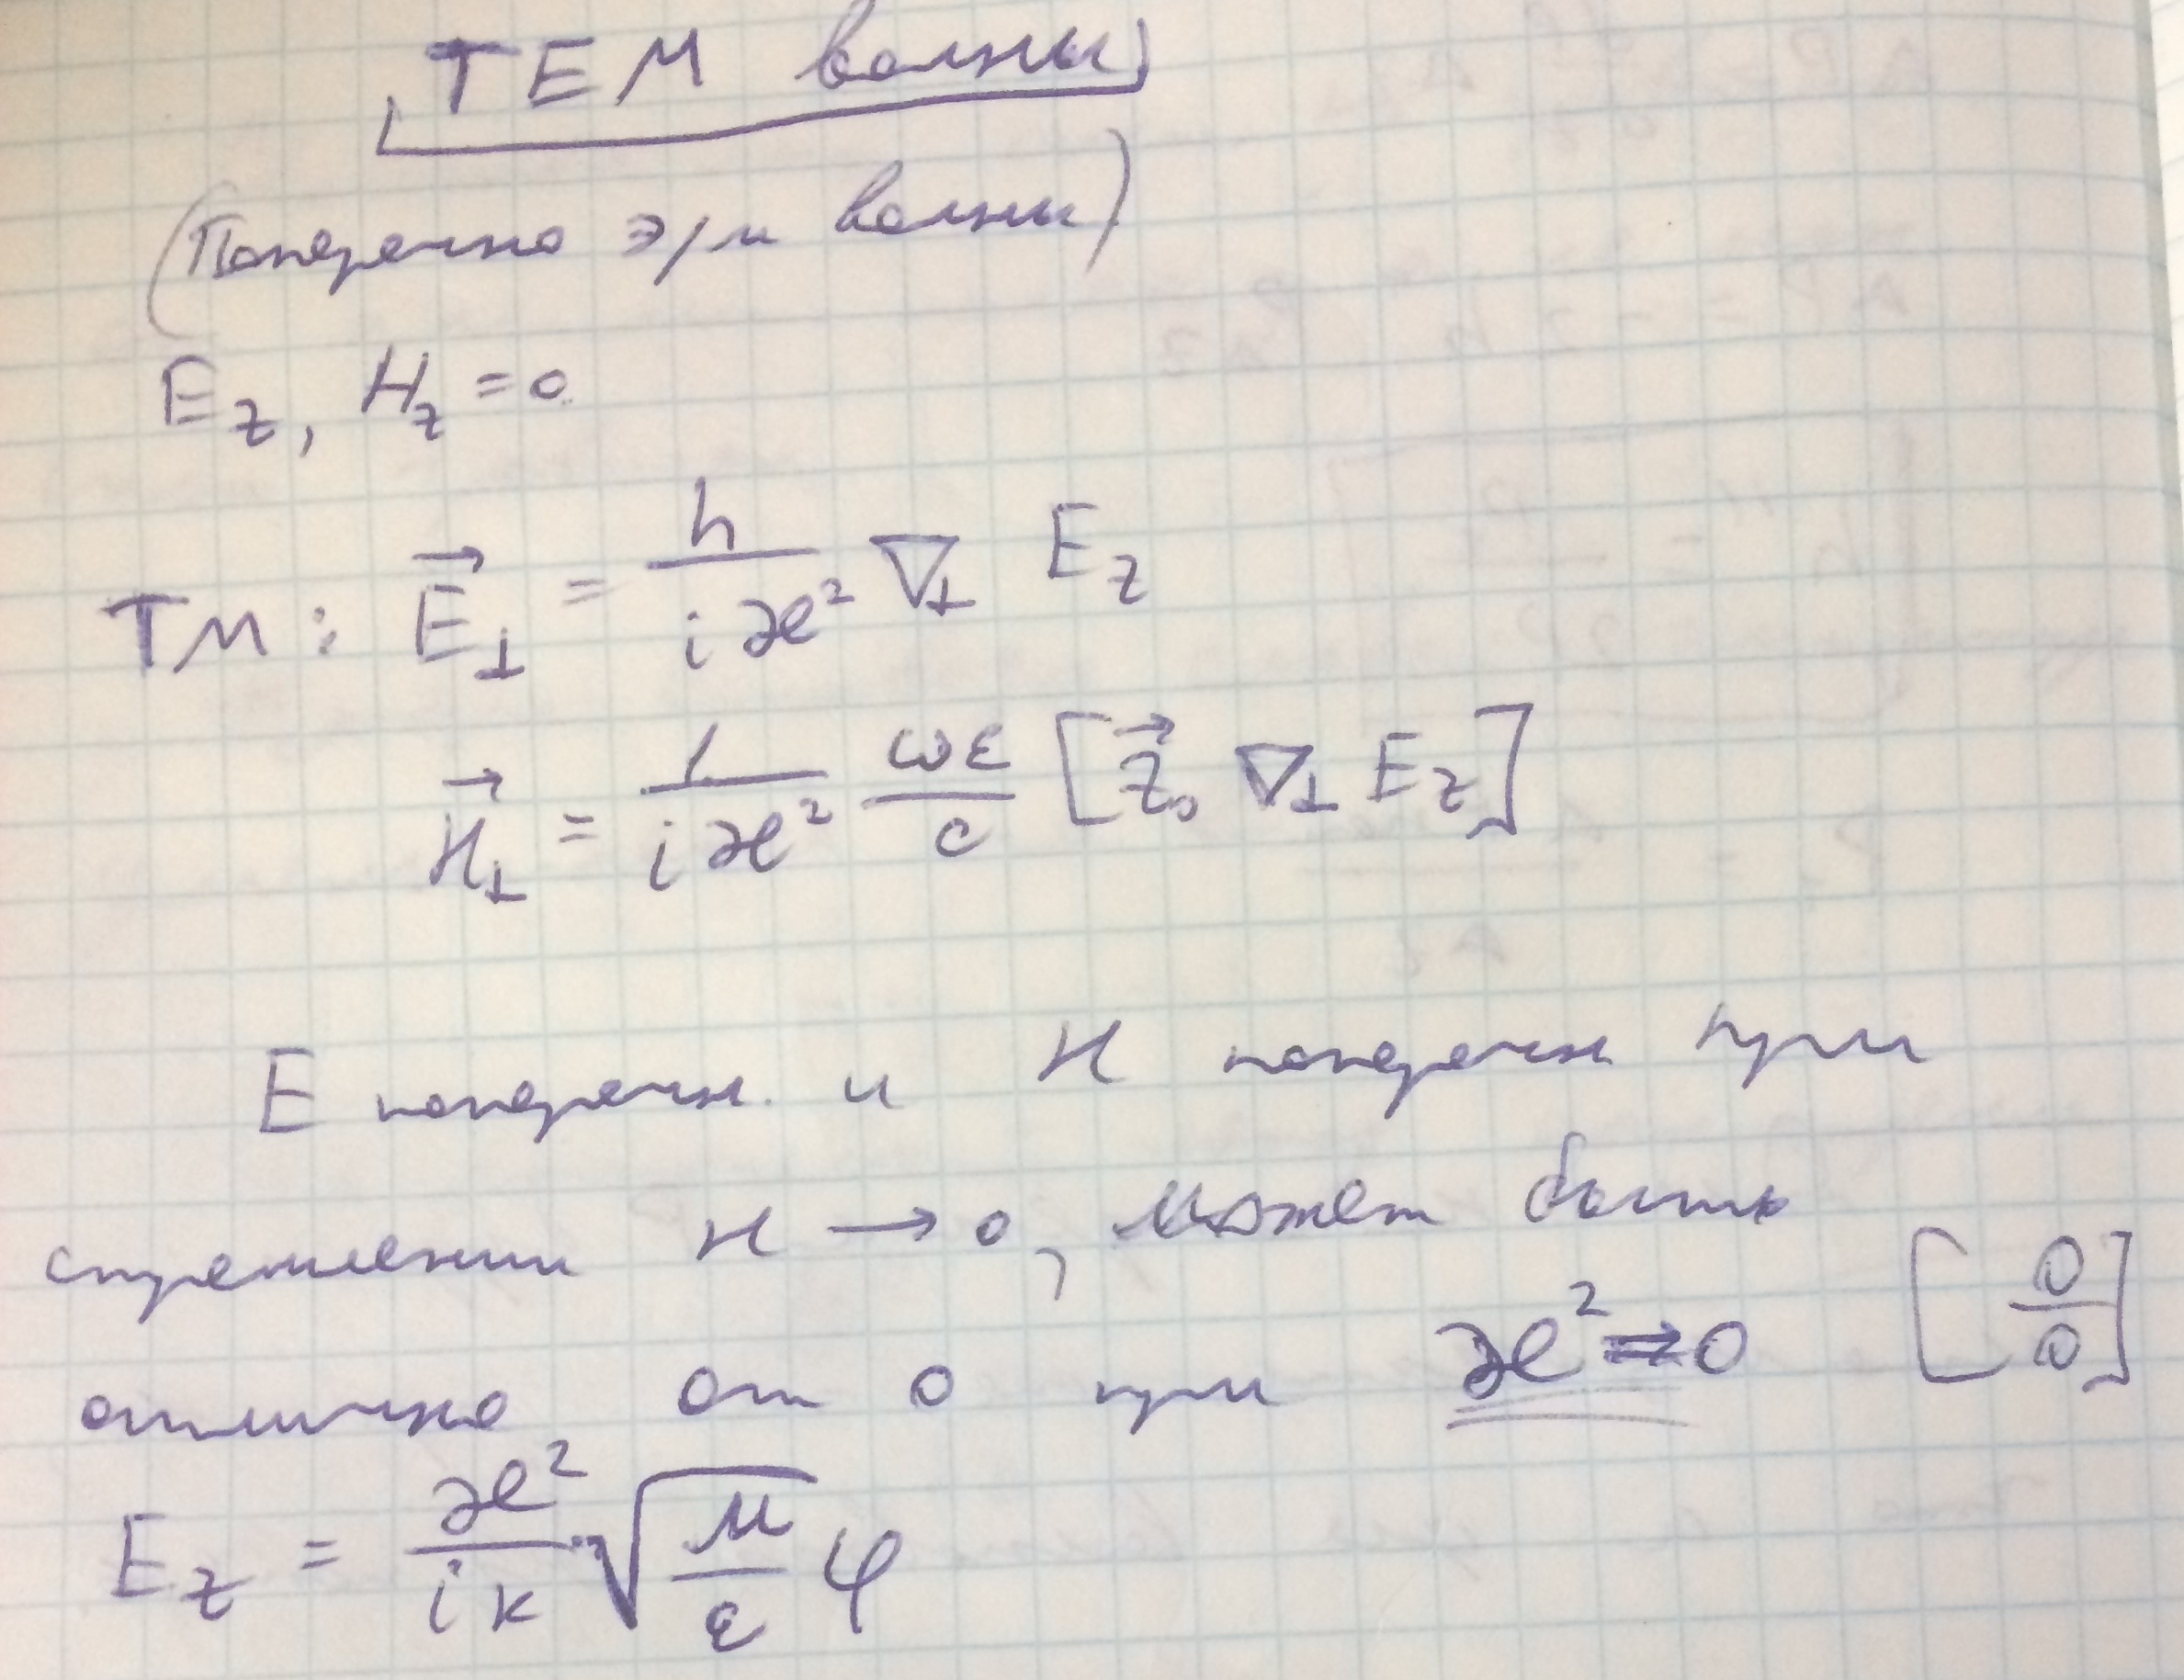 ТЕМ волны
(Поперечно э/м волны)
E_z, H_z = 0
ТМ: \vec{E}_⊥ = \frac{h}{i æ^2} ∇_⊥ E_z
\vec{H}_⊥ = \frac{1}{i æ^2} \frac{ωε}{c} [\vec{z}_0 ∇_⊥ E_z]
E поперечн. и H поперечн при
стремлении H → 0, может быть
отлично от 0 при æ^2 ⇒ 0 [\frac{0}{0}]
E_z = \frac{æ^2}{i к} \sqrt{\frac{μ}{ε}} φ